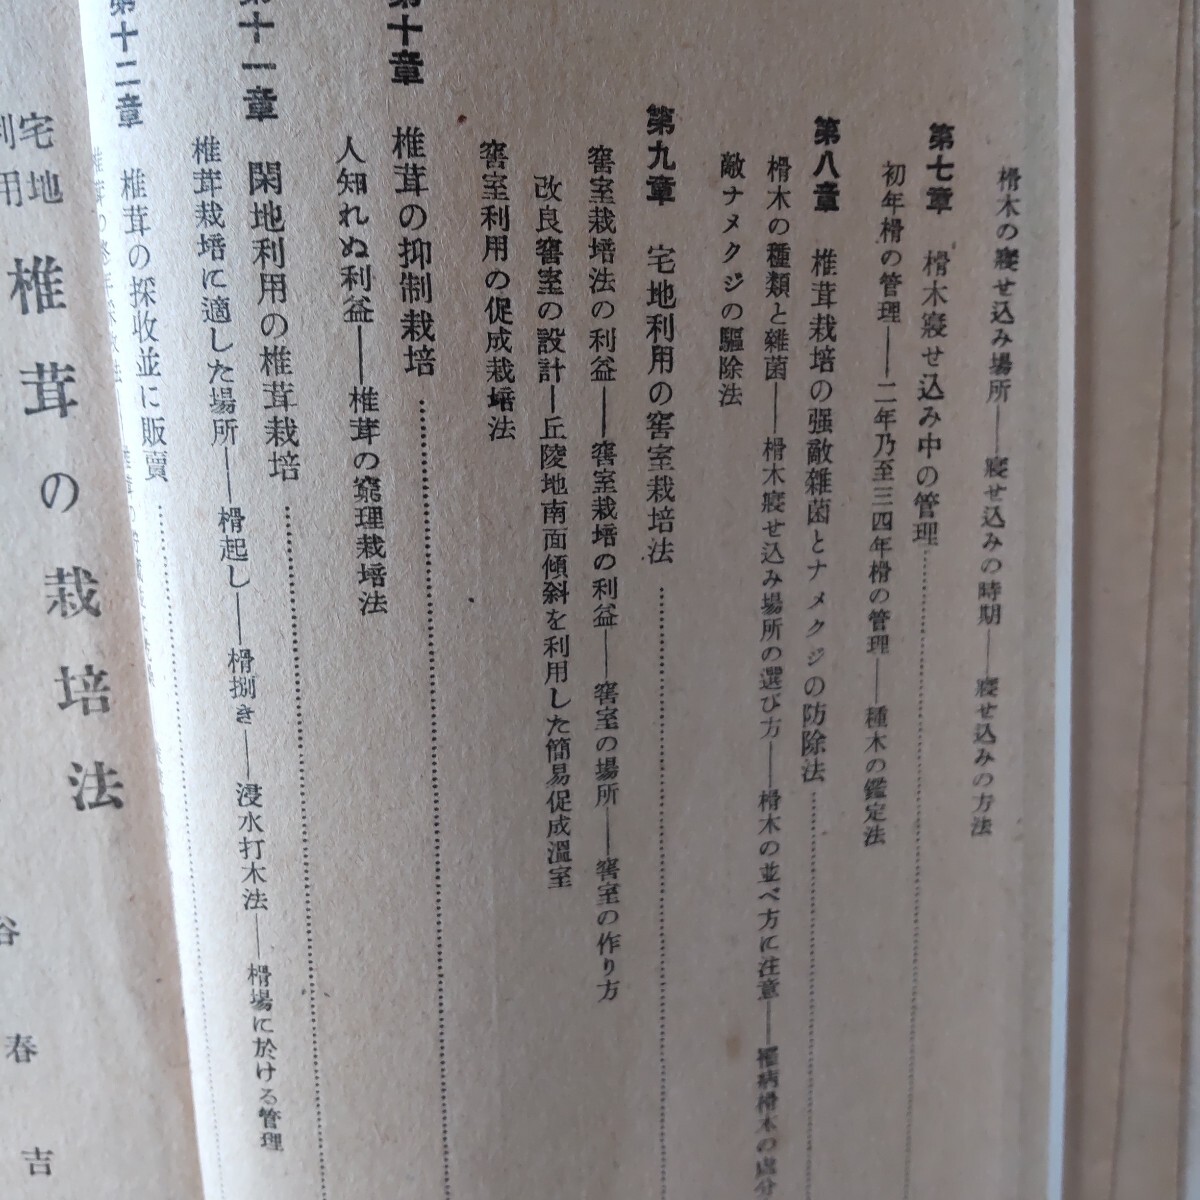 榾木の寢せ込み場所――寢せ込みの時期――寢せ込みの方法
第七章 榾木寢せ込み中の管理
初年榾の管理――二年乃至三四年榾の管理――種木の鑑定法
第八章 椎茸栽培の强敵雜菌とナメクジの防除法
榾木の種類と雜菌――榾木寢せ込み場所の選び方――榾木の並べ方に注意――罹病榾木の處分
敵ナメクジの驅除法
第九章 宅地利用の窖室栽培法
窖室栽培法の利益――窖室栽培の利益――窖室の場所――窖室の作り方
改良窖室の設計――丘陵地南面傾斜を利用した簡易促成溫室
窖室利用の促成栽培法
第十章 椎茸の抑制栽培
人知れぬ利益――椎茸の窮理栽培法
第十一章 閑地利用の椎茸栽培
椎茸栽培に適した場所――榾起し――榾捌き――浸水打木法――榾場に於ける管理
第十二章 椎茸の採收並に販賣
宅地利用 椎茸の栽培法
谷春吉